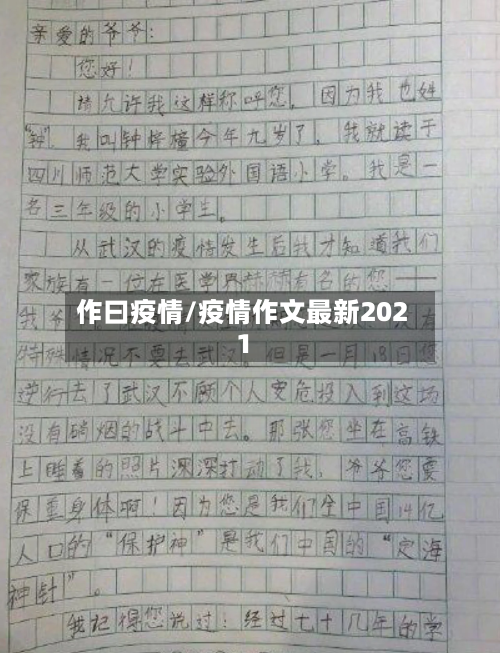 亲爱的爷爷：
您好！
请允许我这样称呼您，因为我也姓
“钟”，我叫钟梓橦今年九岁了，我就读于
四川师范大学实验外国语小学。我是一
名三年级的小学生。
从武汉的疫情发生后我才知道我们
家族有一位在医学界赫赫有名的您——
我爷
作曰疫情/疫情作文最新202
1
有
特殊情况不要去武汉。但是一月18日您
逆行去了武汉不顾个人安危投入到这场
没有硝烟的战斗中去。那张您坐在高铁
上睡着的照片深深打动了我，爷爷您要
保重身体啊！因为您是我们全中国14亿
人口的“保护神”是我们中国的“定海
神针”。
我记得您说过：经过七十几年的学